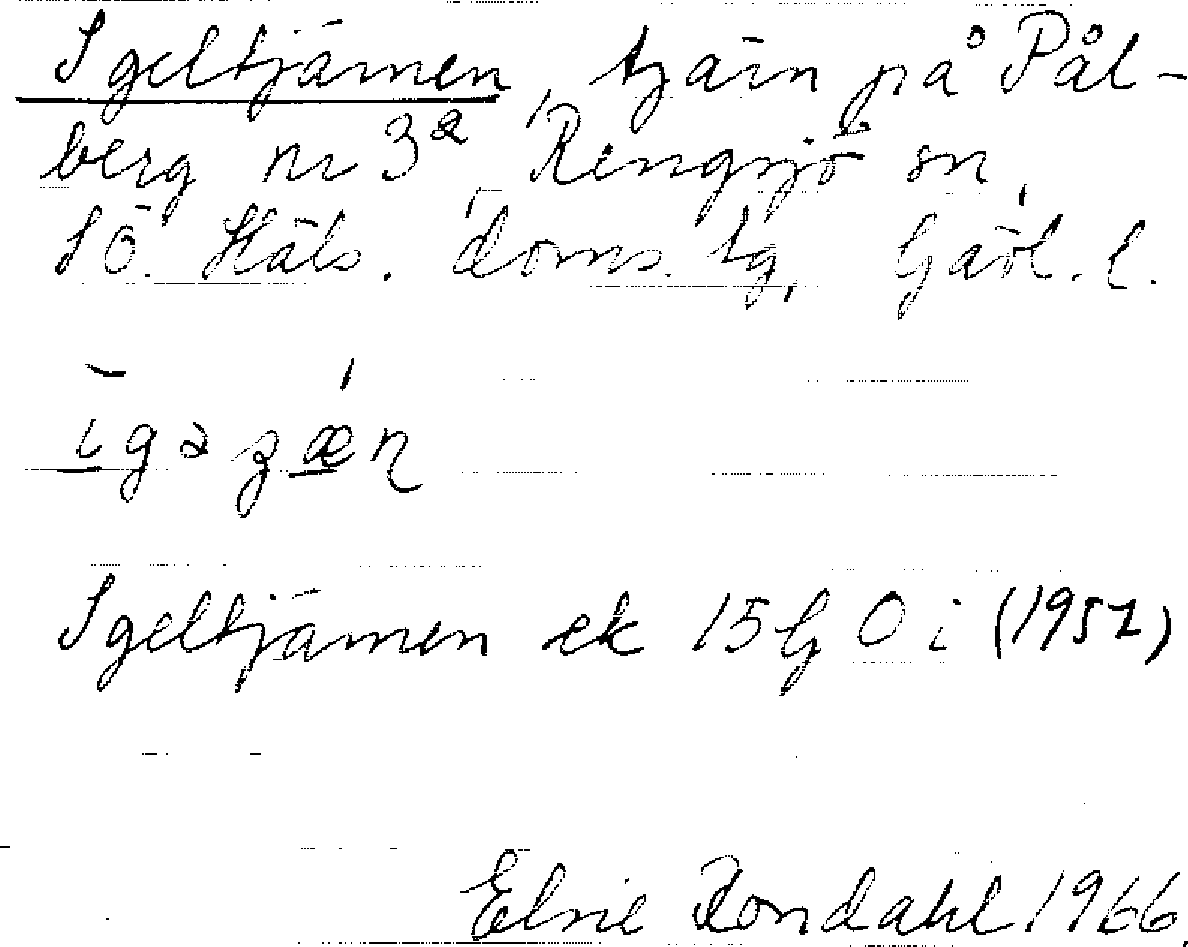 Igeltjärnen, tjärn på Pål-
berg nr 3², Rengsjö sn,
SÖ. Häls. doms. tg, Gävl. l.
īgəʒǽɳ
Igeltjärnen ek 15G 0i (1957)
Elsie Rondahl 1966.